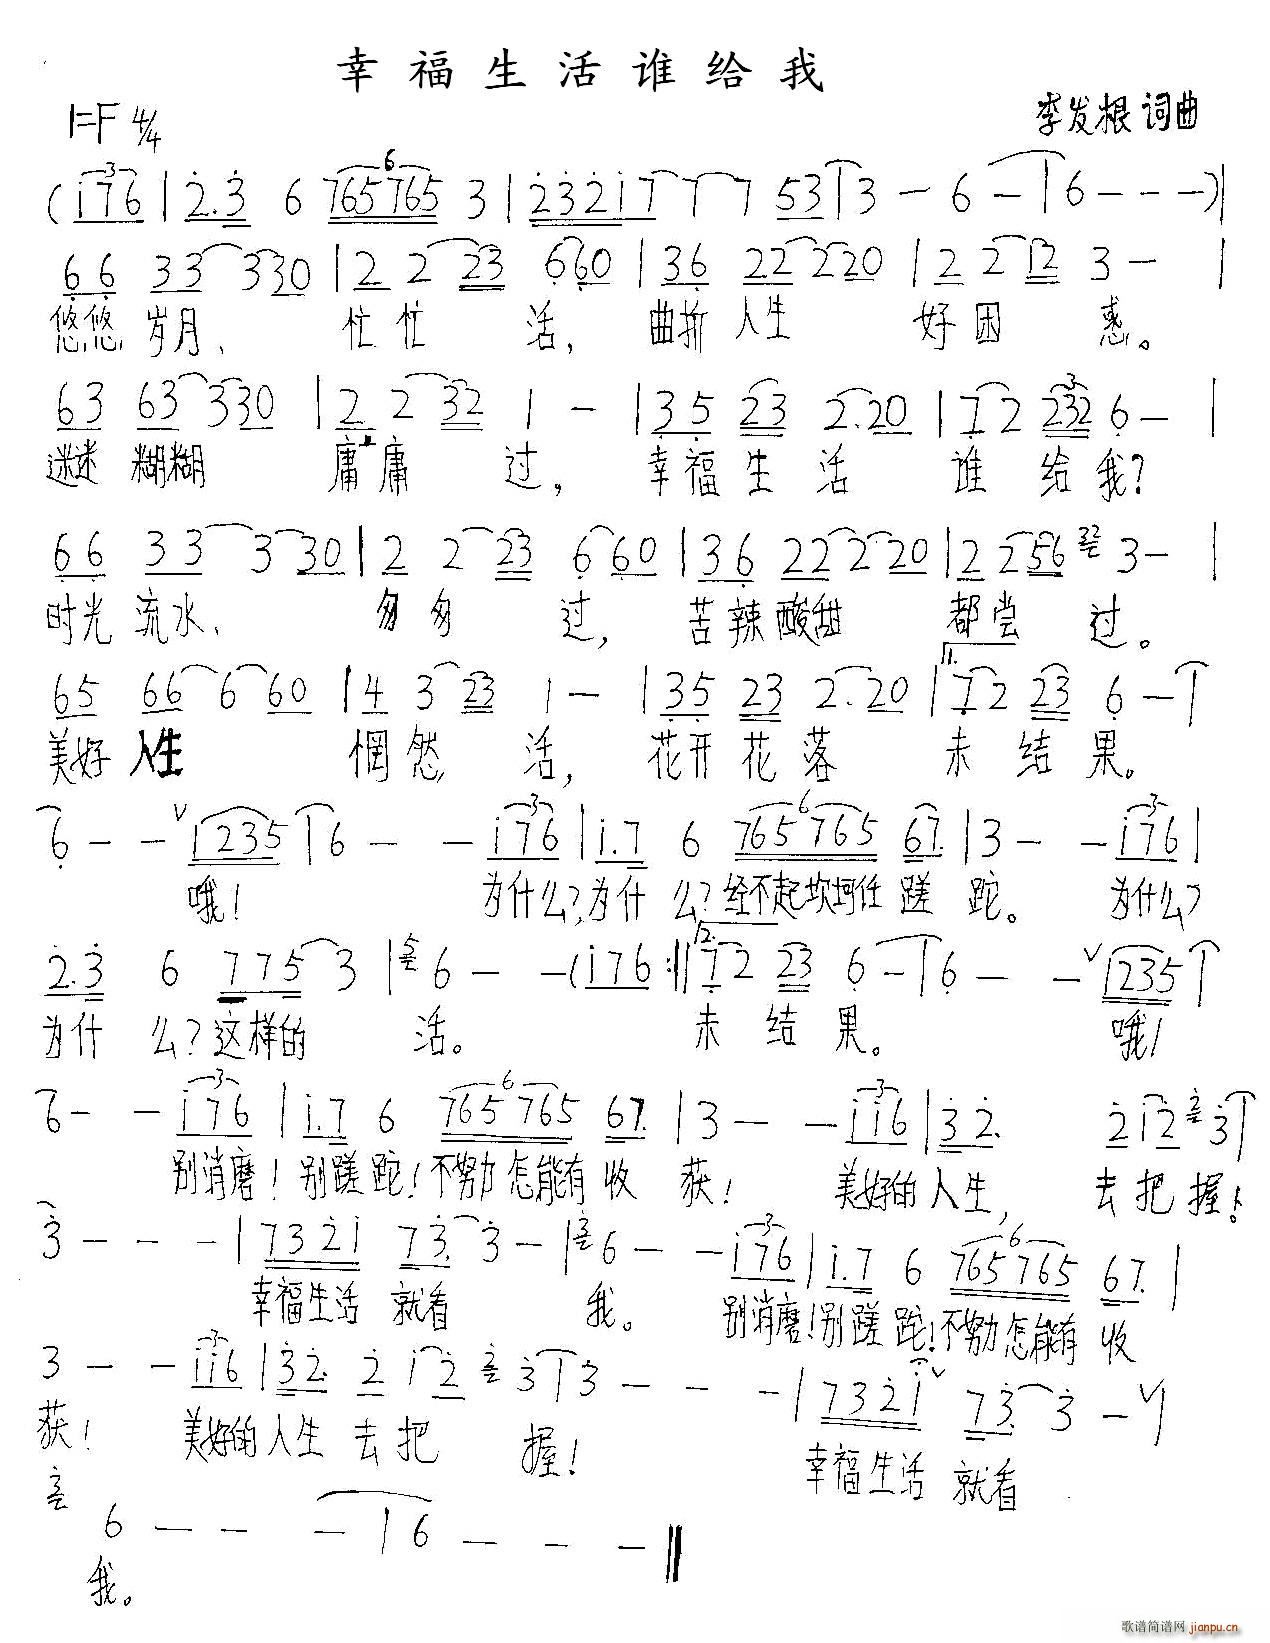 幸福生活谁给我
1=F 4/4
李发根 词曲
(i76|2.3 6 765765 3|2321777 53|3 - 6 - |6 - - -)|
66 33 3330|2 2 23 660|36 22 2220|2 2 12 3 - |
悠悠岁月、忙忙活,曲折人生好困惑。
63 63 3330|2 2 32 1 - |35 23 2.20|7 2 232 6 - |
迷迷糊糊庸庸过,幸福生活谁给我?
66 33 3 330|2 2 23 6 60|36 22 2 220|2 2 56 32 3 - |
时光流水、匆匆过,苦辣酸甜都尝过。
1.
65 66 6 60|4 3 23 1 - |35 23 2.20|7 2 23 6 - |
美好人生惘然活,花开花落未结果。
6 - - 1235|6 - - i76|i.7 6 765765 67.|3 - - i76|
哦!为什么?为什么?经不起坎坷任蹉跎。为什么?
2.
2.3 6 775 3|5 6 - - (i76:||7 2 23 6 - |6 - - 1235|
为什么?这样的活。未结果。哦!
6 - - i76|i.7 6 765765 67.|3 - - ii6|32. 2i2 2 3|
别消磨!别蹉跎!不努力怎能有收获!美好的人生,去把握!
3 - - - |732i 73. 3 - |2 6 - - i76|i.7 6 765765 67.|
幸福生活就看我。别消磨!别蹉跎!不努力怎能有收
3 - - ii6|32. 2 i2 2 3|3 - - - |732i 73. 3 - |
获!美好的人生去把握!幸福生活就看
2 6 - - - |6 - - - ||
我。
歌谱简谱网 jianpu.cn